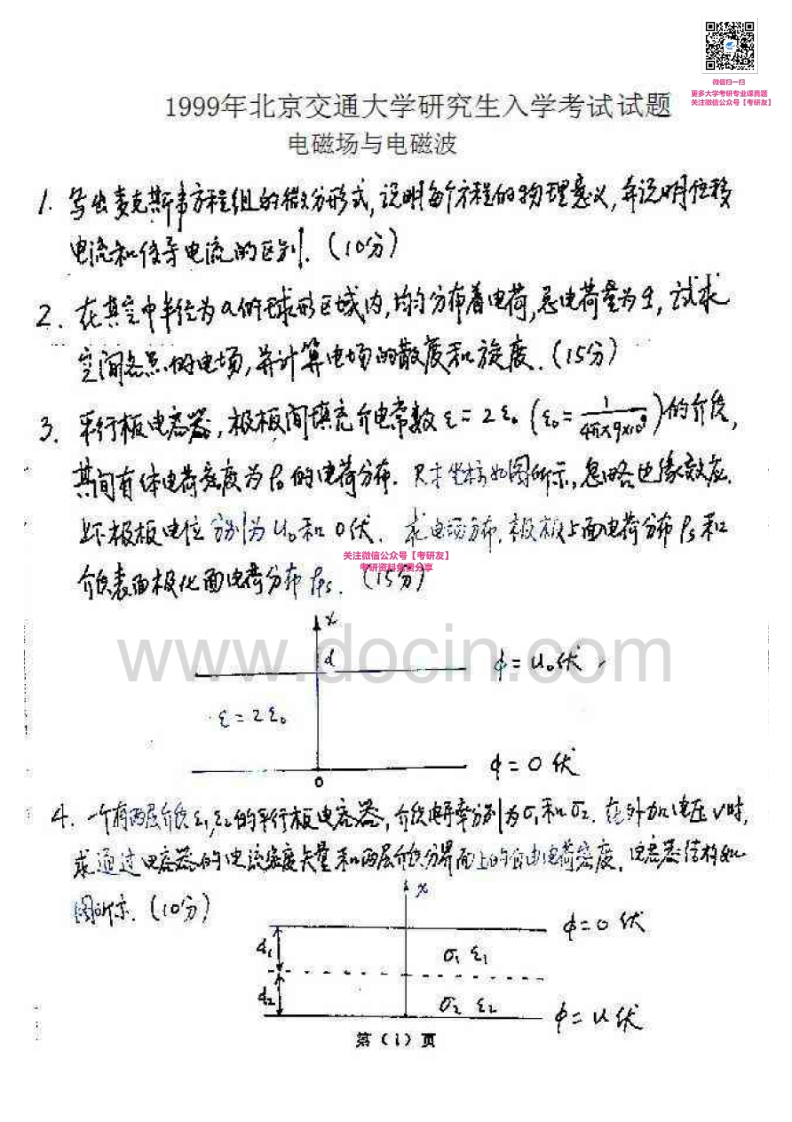 微信扫一扫
更多大学考研专业课真题
关注微信公众号【考研友】
1999年北京交通大学研究生入学考试试题
电磁场与电磁波
1. 写出麦克斯韦方程组的微分形式,说明每个方程的物理意义,并说明位移
电流和传导电流的区别.(10分)
2. 在真空中半径为a的球形区域内,均匀分布着电荷,总电荷量为q,试求
空间各点的电场,并计算电场的散度和旋度.(15分)
3. 平行板电容器,极板间填充介电常数 ε=2ε₀ (ε₀=1/(4π×9×10⁹))的介质,
其间有体电荷密度为ρ₀的电荷分布.尺寸坐标如图所示,忽略边缘效应.
上下极板电位分别为U₀和0伏.求电场分布,极板上面电荷分布ρs和
关注微信公众号【考研友】
考研资料免费分享
介质表面极化面电荷分布ρps.(15分)
x
www.docin.com
d
ϕ=U₀伏
ε=2ε₀
ϕ=0伏
0
4. 一个有两层介质ε₁,ε₂的平行板电容器,介质电导率分别为σ₁和σ₂.在外加电压V时,
求通过电容器的电流密度矢量和两层介质分界面上的自由电荷密度,电容器结构如
图所示.(10分)
x
ϕ=0伏
d₁
σ₁ ε₁
d₂
σ₂ ε₂
ϕ=U伏
第(1)页